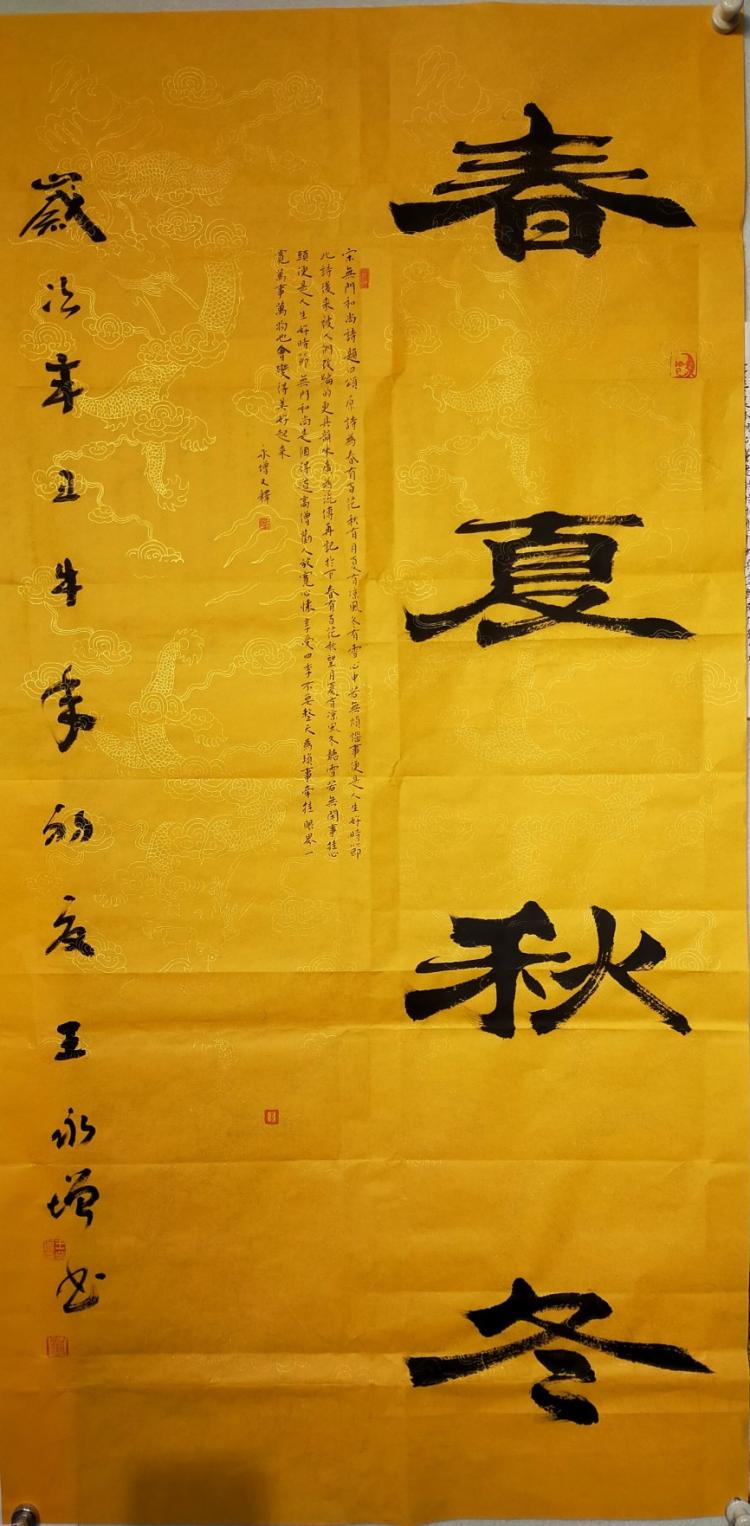 春夏秋冬
宋無門和尚詩題四頌原詩為春有百花秋有月夏有涼風冬有雪心中若無煩惱事便是人生好時節
此詩後來被人們改編的更具韻味廣為流傳再記於下春有百花秋望月夏有涼風冬聽雪若無閑事挂心
頭便是人生好時節無門和尚是個得道高僧勸人放寬心懷享受四季不要整天為瑣事牽挂眼界一
寬萬事萬物也會變得美好起來
永增又釋
歲次辛丑牛年初夏王永增书